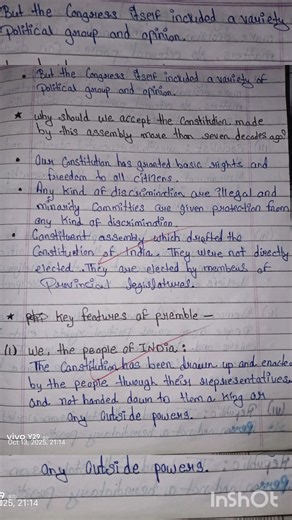 But the Congress itself included a variety
Political group and opinion.
• But the Congress itself included a variety of
Political group and opinion.
★ why should we accept the Constitution made
by this assembly more than seven decades ago?
• Our Constitution has granted basic rights and
freedom to all citizens.
• Any kind of discrimination are illegal and
minority Committies are given protection from
any kind of discrimination.
• Constituent assembly which drafted the
Constitution of India. They were not directly
elected. They are elected by members of
Provincial legislatures.
★ key features of premble —
(i) We, the people of INDIA:
The Constitution has been drawn up and enacte
by the people through their representatives
and not handed down to them a king or
any outside powers.
vivo Y29
Oct 13, 2025, 21:14
any outside powers.
9
025, 21:14
InShOt